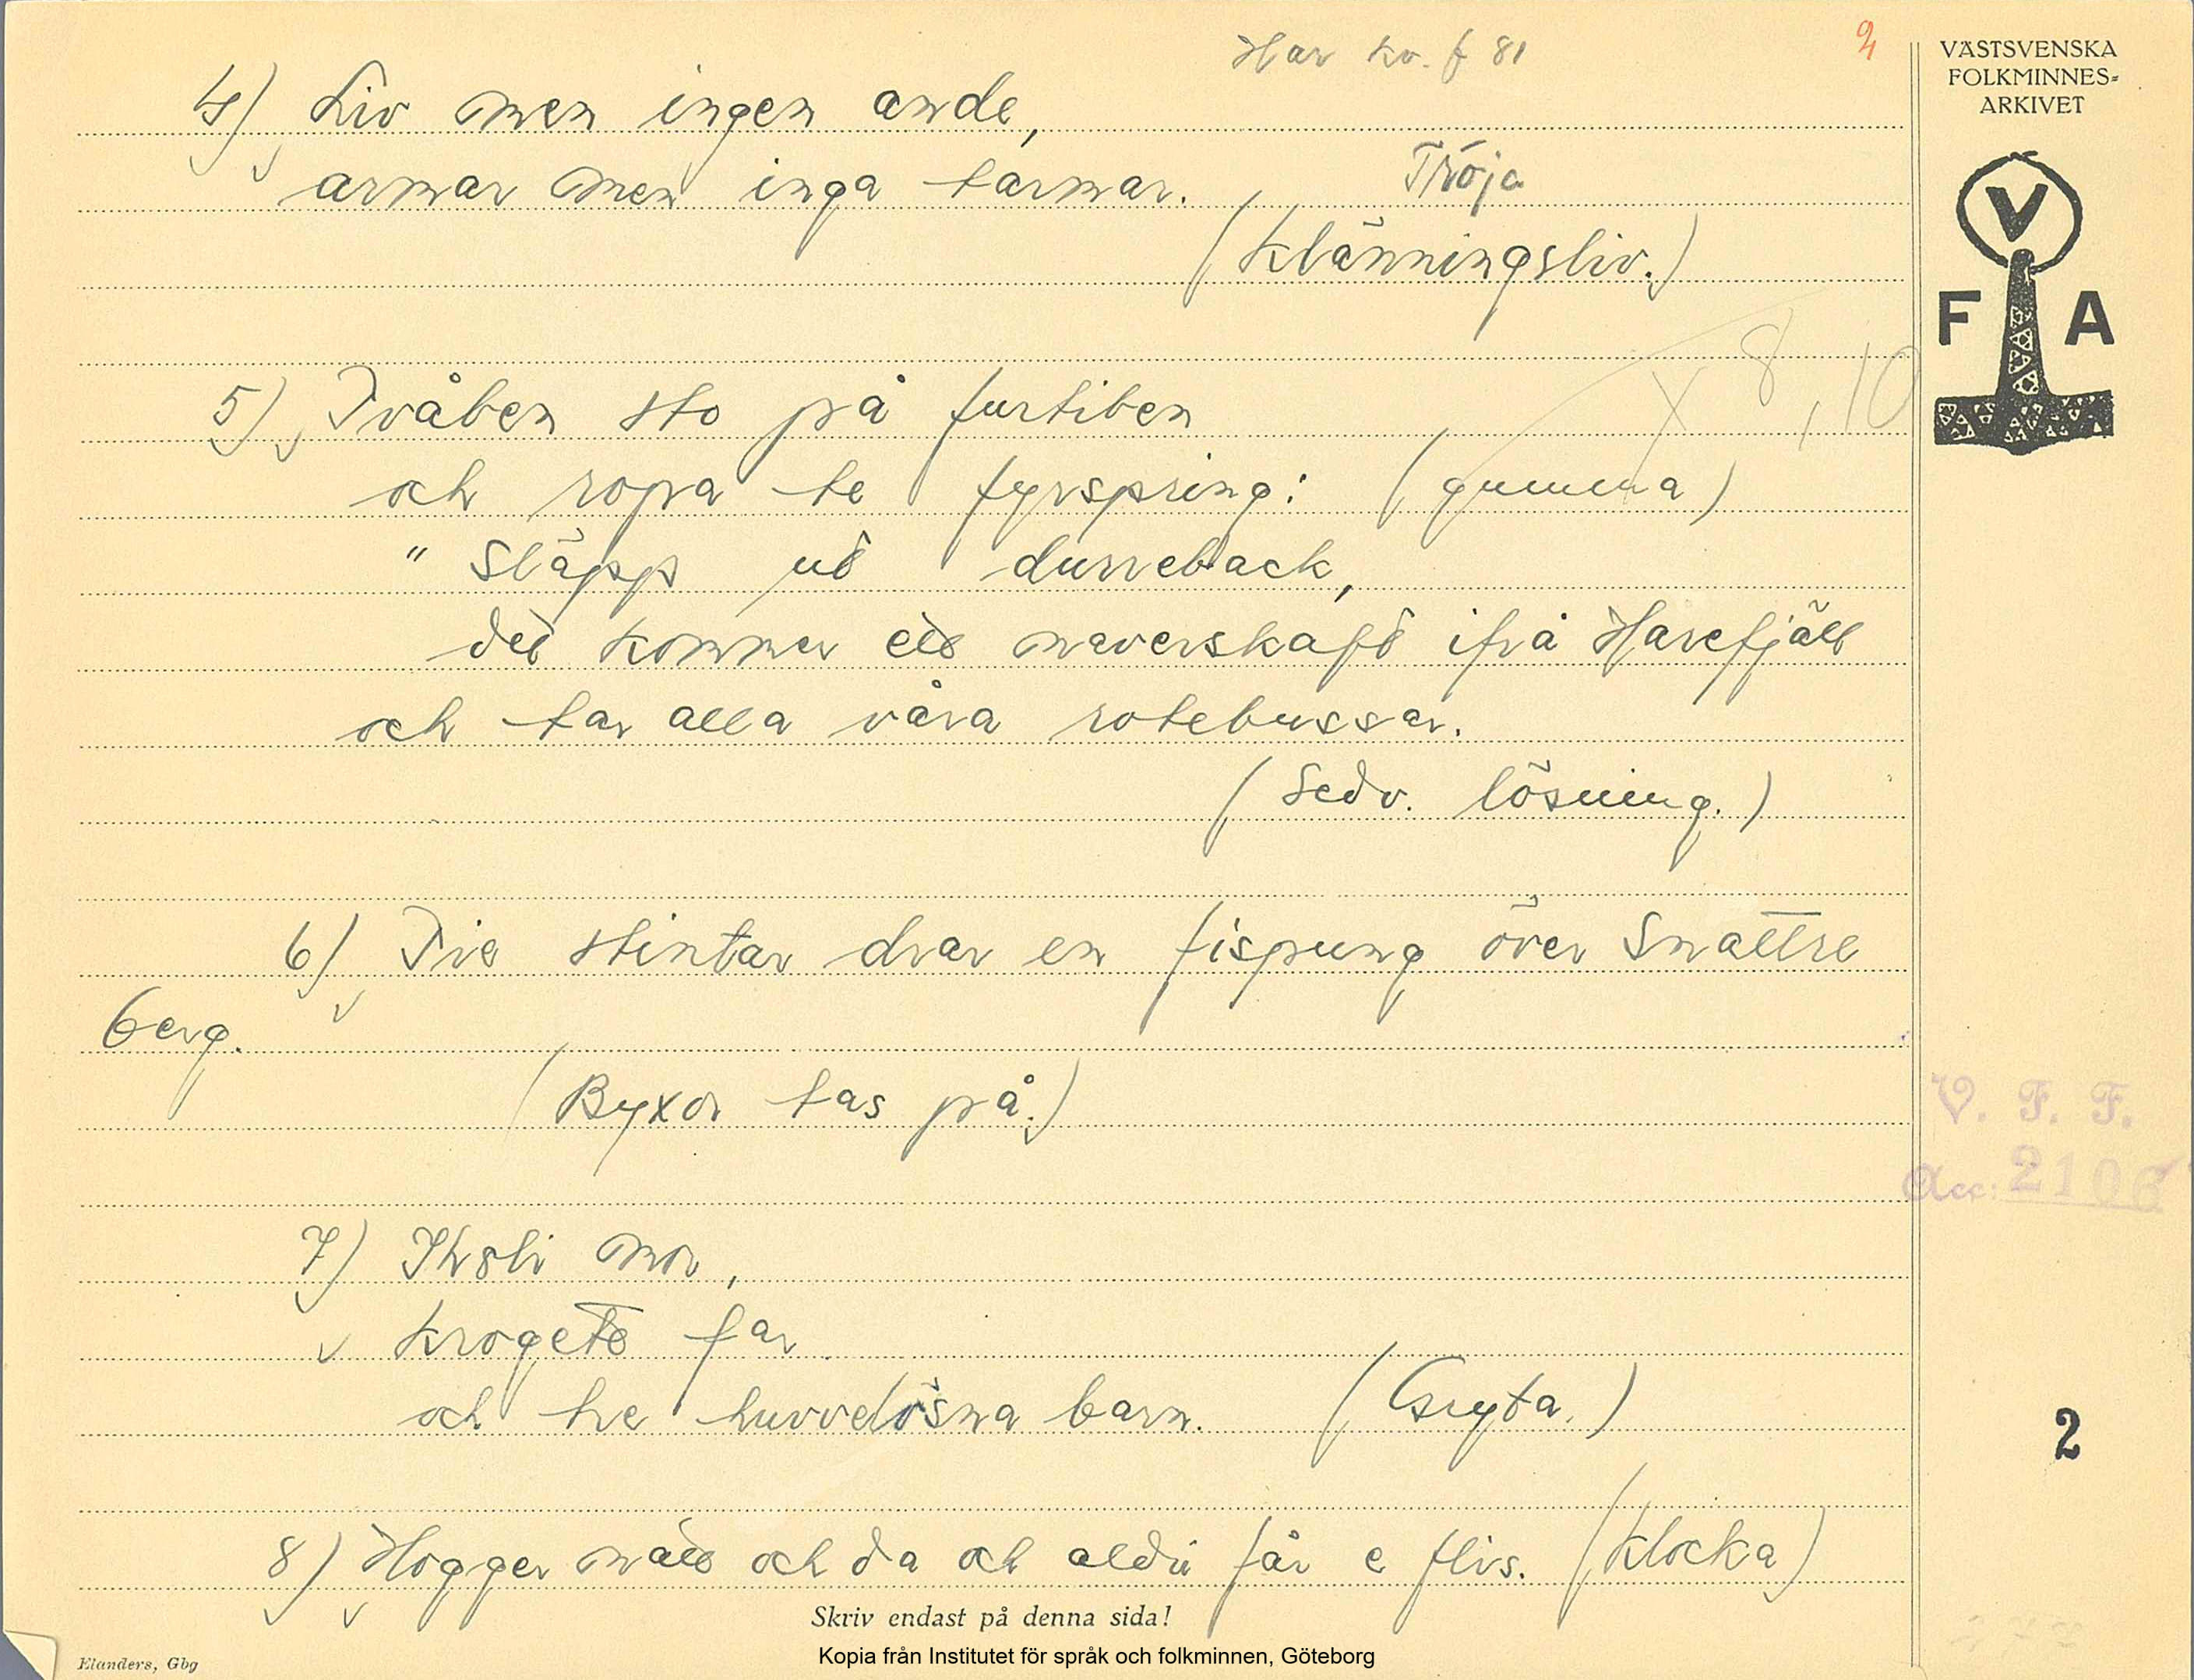 Har kv. f 81
2
VÄSTSVENSKA
FOLKMINNES-
ARKIVET
V
F A
4) Liv men ingen ande,
armar men inga tarmar.
Tröja
(Klänningsliv.)
8, 10
5) Tvåben sto på furtiben
och ropa te fyrspring: (gumma)
"Släpp ut durreback,
det kommer ett naverskaft ifrå Harefjäll
och tar alla våra rotebussar.
(Sedv. lösning.)
6) Tie stintar drar en fispung över Snattre
berg.
(Byxor tas på.)
V. F. F.
Acc: 2106
7) mor,
krogete far
och tre huvvelösna barn. (Gryta.)
2
8) Hogger natt och da och aldri får e flis. (Klocka)
Skriv endast på denna sida!
Elanders, Gbg
Kopia från Institutet för språk och folkminnen, Göteborg